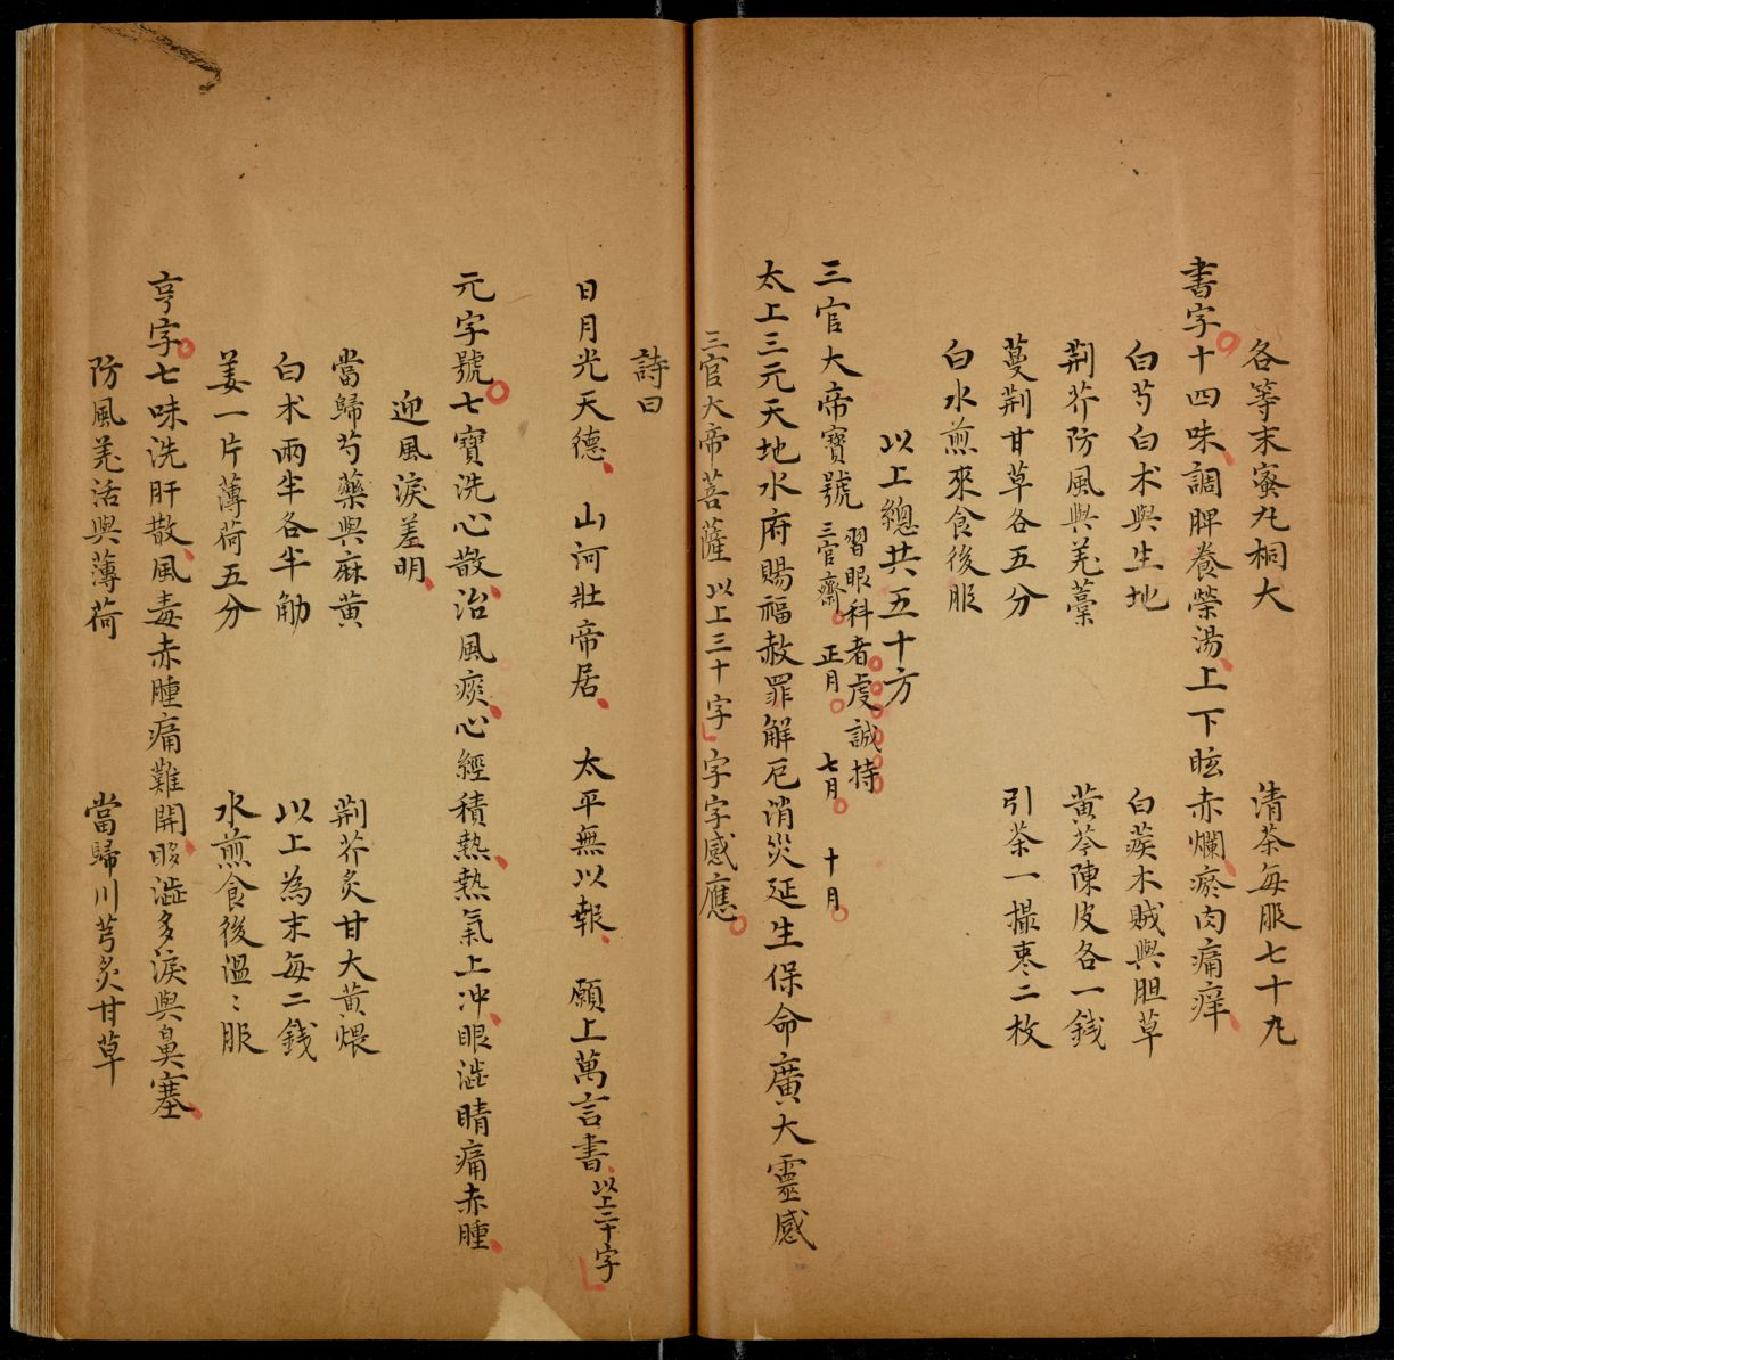 各等末蜜丸桐大　清茶每服七十丸
書字十四味調脾養榮湯上下眩赤爛瘀肉痛痒
白芍白术與生地　白蒺木賊與胆草
荆芥防風與羌藁　黄芩陳皮各一錢
蔓荆甘草各五分　引茶一撮棗二枚
白水煎來食後服
以上總共五十方
三官大帝寶號
習眼科者虔誠持
三官齋正月　七月　十月
太上三元天地水府賜福赦罪解厄消災延生保命廣大靈感
三官大帝菩薩以上三十字字字感應
詩曰
日月光天德　山河壯帝居　太平無以報　願上萬言書以上二十字
元字號七寶洗心散治風痰心經積熱熱氣上冲眼澁睛痛赤腫
迎風淚差明
當歸芍藥與麻黄　荆芥炙甘大黄煨
白术兩半各半觔　以上為末每二錢
姜一片薄荷五分　水煎食後溫：服
亨字七味洗肝散風毒赤腫痛難開眵澁多淚與鼻塞
防風羌活與薄荷　當歸川芎炙甘草